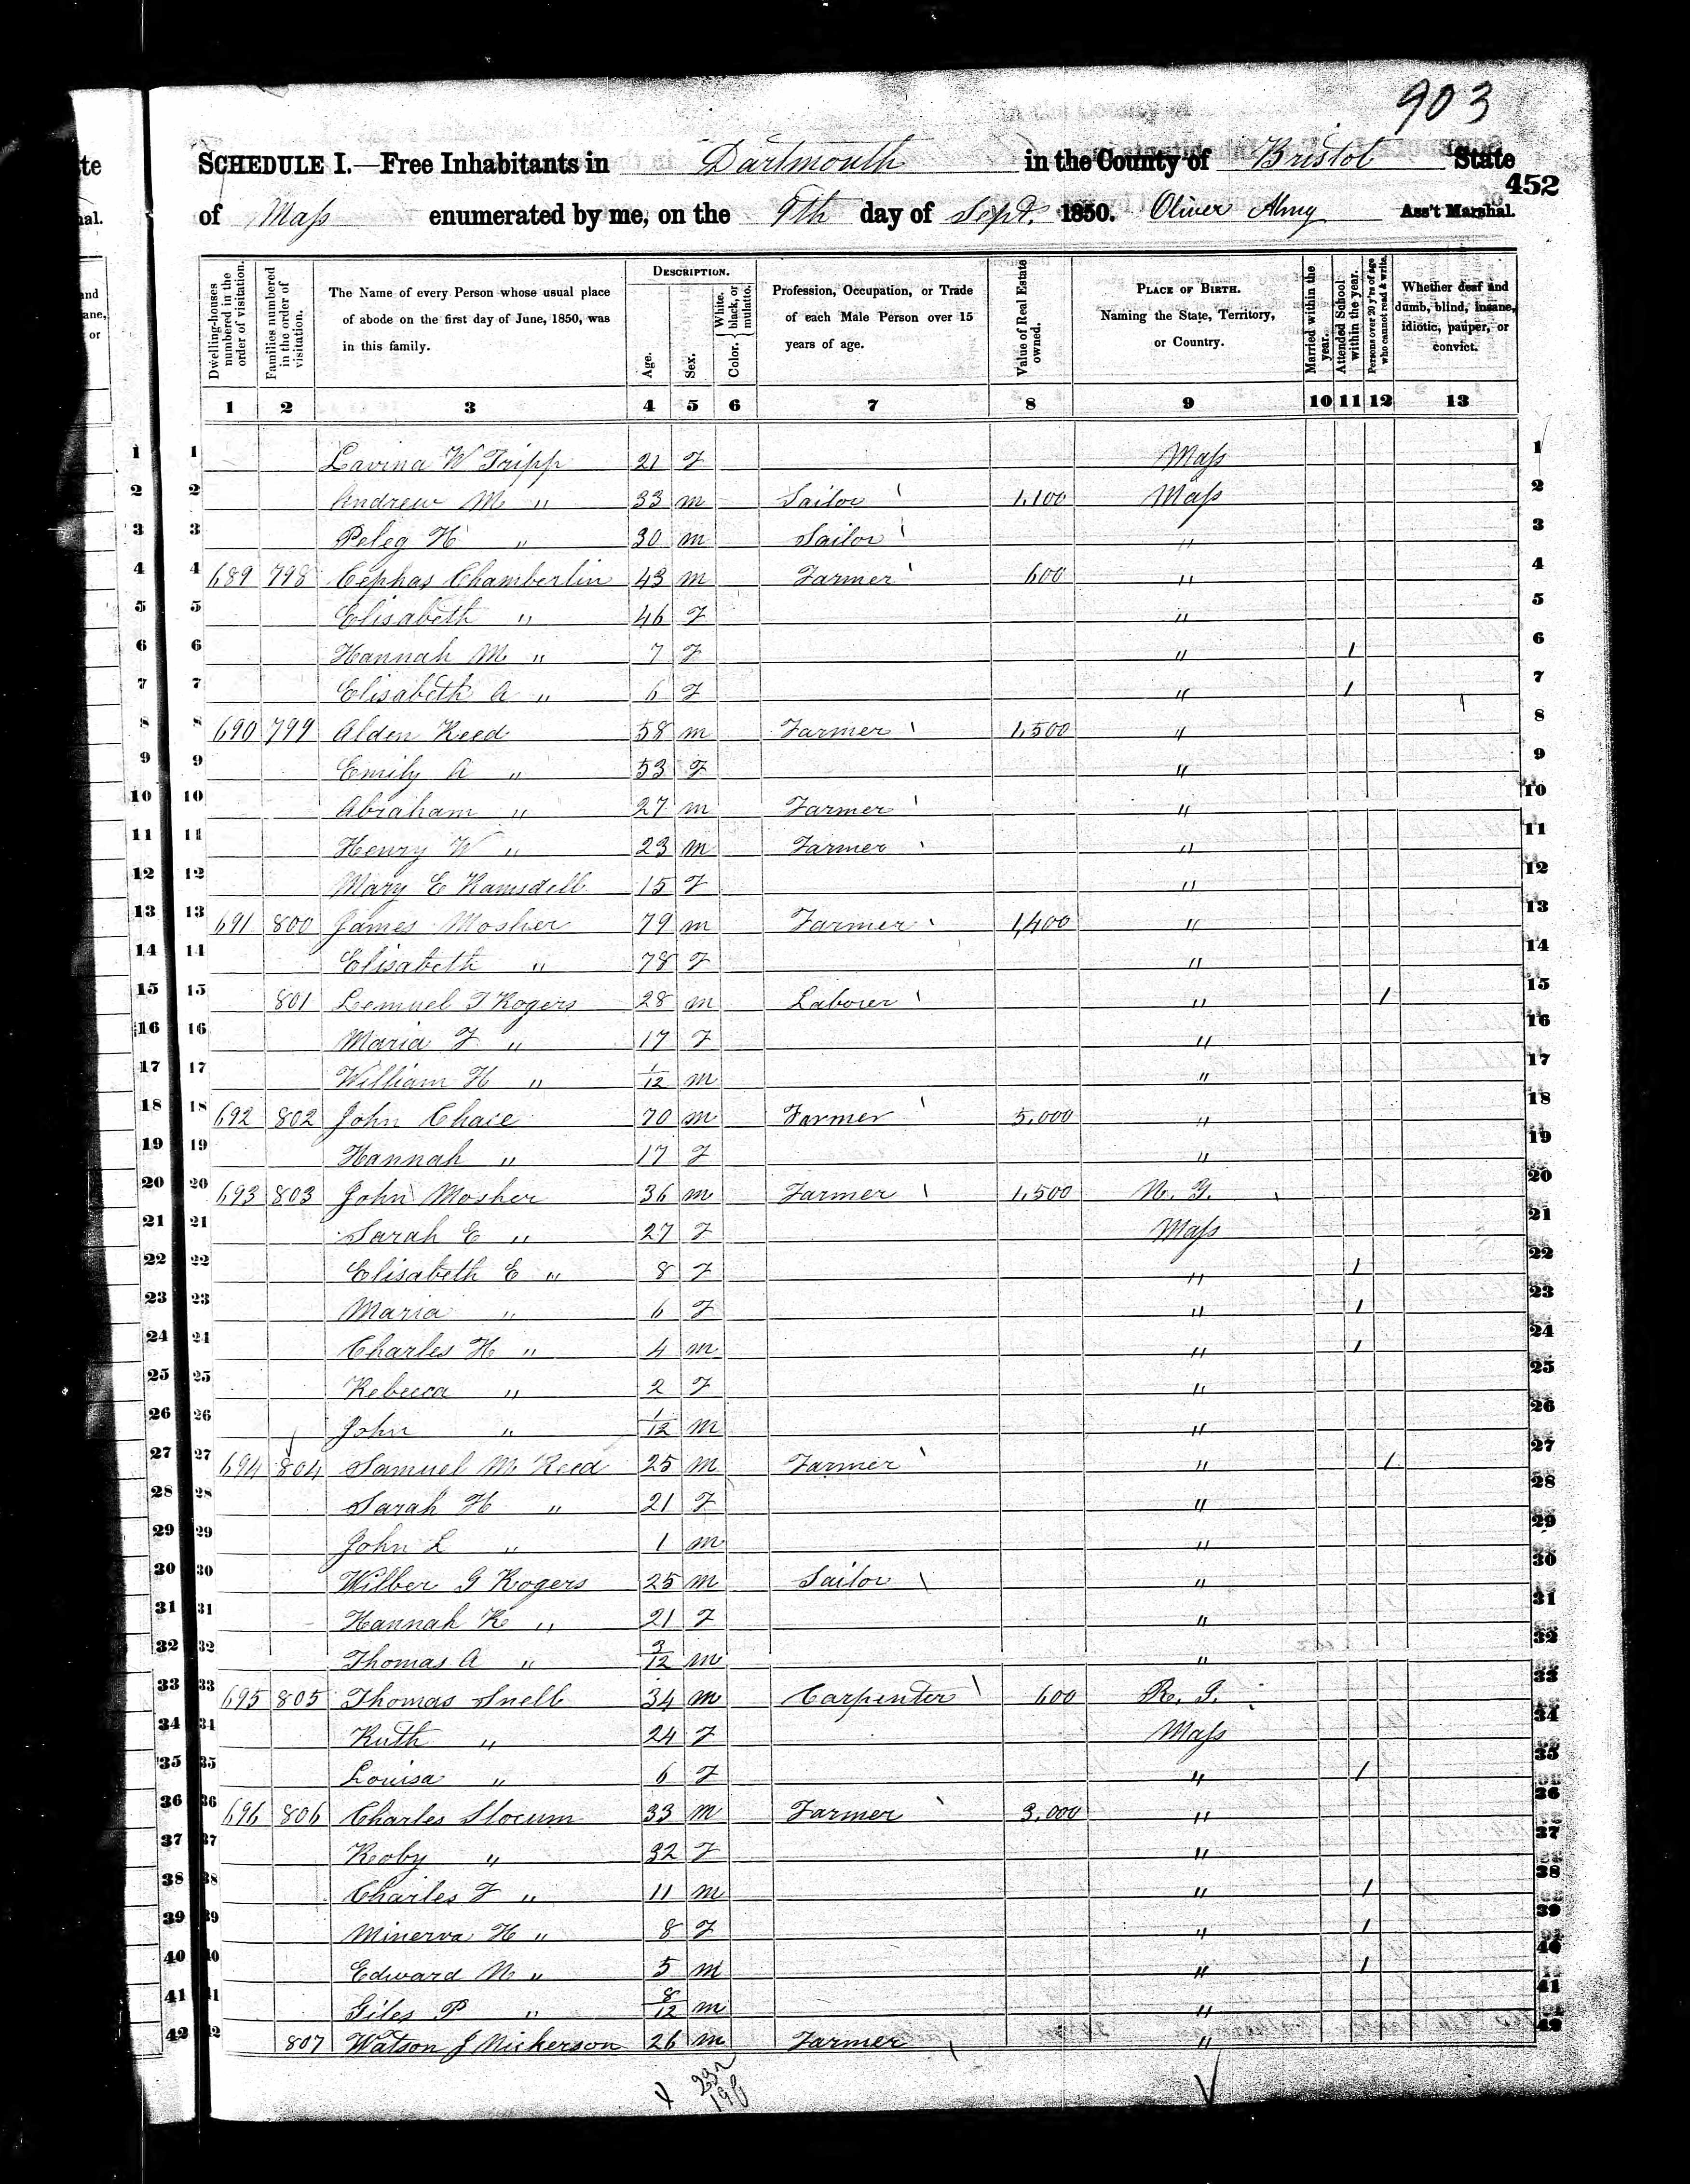 903
SCHEDULE I.—Free Inhabitants in Dartmouth in the County of Bristol State
452
of Mass enumerated by me, on the 9th day of Sept. 1850. Oliver Almy Ass't Marshal.
Dwelling-houses numbered in the order of visitation.
Families numbered in the order of visitation.
The Name of every Person whose usual place of abode on the first day of June, 1850, was in this family.
DESCRIPTION.
Age.
Sex.
Color. White, black, or mulatto.
Profession, Occupation, or Trade of each Male Person over 15 years of age.
Value of Real Estate owned.
PLACE OF BIRTH. Naming the State, Territory, or Country.
Married within the year.
Attended School within the year.
Persons over 20 y'rs of age who cannot read & write.
Whether deaf and dumb, blind, insane, idiotic, pauper, or convict.
1 2 3 4 5 6 7 8 9 10 11 12 13
1 Lavina W Tripp 21 F Mass 1
2 Andrew M " 33 m Sailor 1,100 Mass 2
3 Peleg H " 30 m Sailor " 3
4 689 798 Cephas Chamberlin 43 m Farmer 600 " 4
5 Elisabeth " 46 F " 5
6 Hannah M " 7 F " 1 6
7 Elisabeth A " 6 F " 1 7
8 690 799 Alden Reed 58 m Farmer 1,500 " 8
9 Emily A " 53 F " 9
10 Abraham " 27 m Farmer " 10
11 Henry W " 23 m Farmer " 11
12 Mary E Ramsdell 15 F " 12
13 691 800 James Mosher 79 m Farmer 1,400 " 13
14 Elisabeth " 78 F " 14
15 801 Lemuel T Rogers 28 m Laborer " 1 15
16 Maria F " 17 F " 16
17 William H " 1/12 m " 17
18 692 802 John Chace 70 m Farmer 5,000 " 18
19 Hannah " 17 F " 19
20 693 803 John Mosher 36 m Farmer 1,500 N. Y. 20
21 Sarah E " 27 F Mass 21
22 Elisabeth E " 8 F " 1 22
23 Maria " 6 F " 1 23
24 Charles H " 4 m " 1 24
25 Rebecca " 2 F " 25
26 John " 1/12 m " 26
27 694 804 Samuel M Reed 25 m Farmer " 1 27
28 Sarah H " 21 F " 28
29 John L " 1 m " 29
30 Wilber G Rogers 25 m Sailor " 30
31 Hannah R " 21 F " 31
32 Thomas A " 3/12 m " 32
33 695 805 Thomas Snell 34 m Carpenter 600 R. I. 33
34 Ruth " 24 F Mass 34
35 Louisa " 6 F " 1 35
36 696 806 Charles Slocum 33 m Farmer 3,000 " 36
37 Roby " 32 F " 37
38 Charles F " 11 m " 1 38
39 Minerva H " 8 F " 1 39
40 Edward N " 5 m " 1 40
41 Giles P " 8/12 m " 41
42 807 Watson J Nickerson 26 m Farmer "